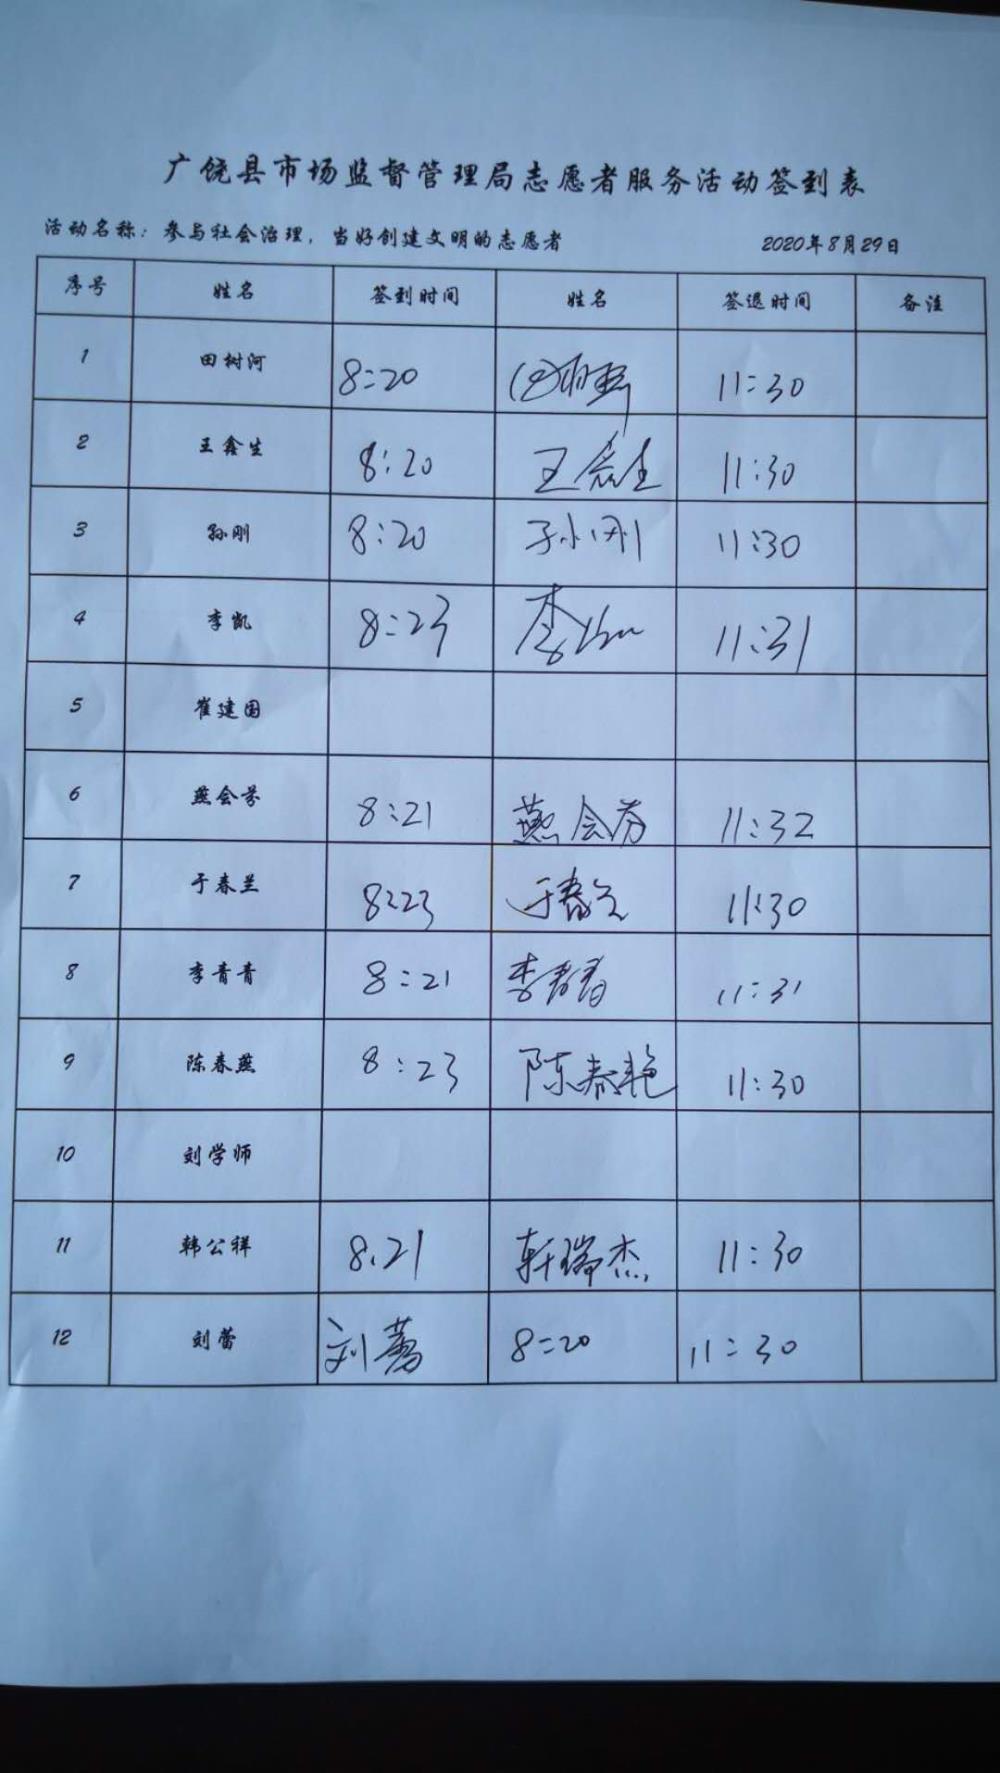 广饶县市场监督管理局志愿者服务活动签到表
活动名称：参与社会治理，当好创建文明的志愿者 2020年8月29日
序号 姓名 签到时间 姓名 签退时间 备注
1 田树河 8:20 11:30
2 王鑫生 8:20 王鑫生 11:30
3 孙刚 8:20 孙刚 11:30
4 李凯 8:23 李凯 11:31
5 崔建国
6 燕会芬 8:21 燕会芬 11:32
7 于春兰 8:23 于春兰 11:30
8 李青青 8:21 李青青 11:31
9 陈春燕 8:23 陈春艳 11:30
10 刘学师
11 韩公祥 8:21 轩瑞杰 11:30
12 刘蕾 刘蕾 8:20 11:30